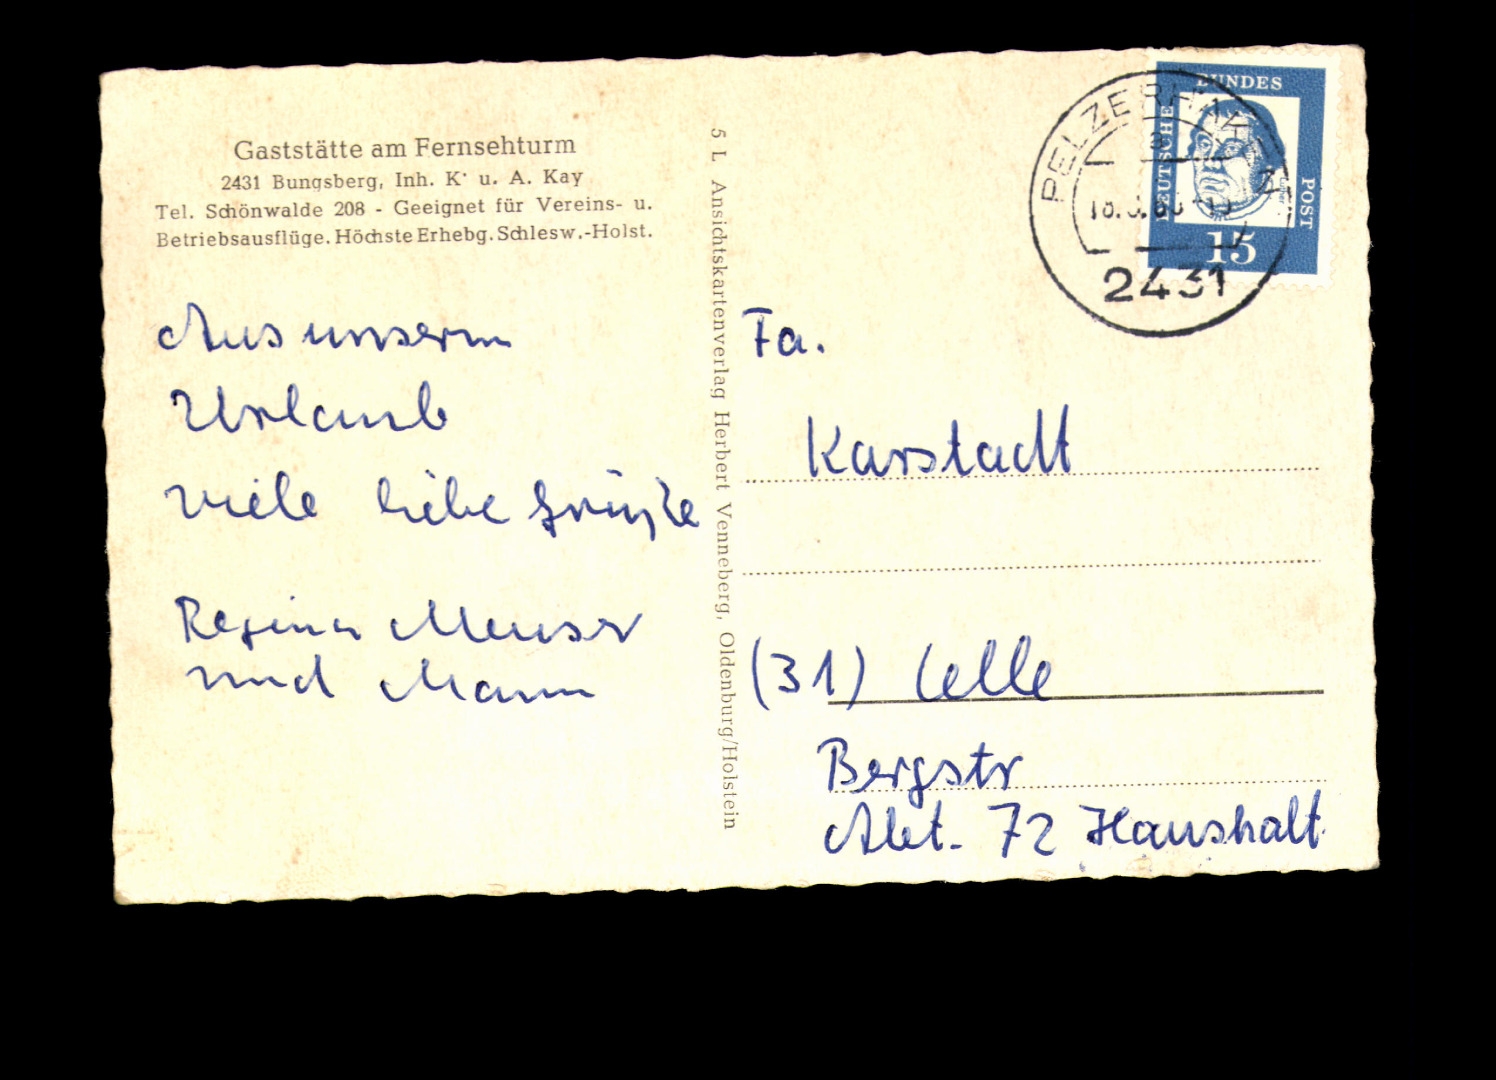 Gaststätte am Fernsehturm
2431 Bungsberg, Inh. K. u. A. Kay
Tel. Schönwalde 208 - Geeignet für Vereins- u.
Betriebsausflüge. Höchste Erhebg. Schlesw.-Holst.
Aus unserm
Urlaub
viele liebe Grüße
Regina Meuser
und Mann
5 L Ansichtskartenverlag Herbert Venneberg, Oldenburg/Holstein
DEUTSCHE BUNDES POST
15
PELZERHAKEN
2431
Fa.
Karstadt
(31) Celle
Bergstr
Abt. 72 Haushalt